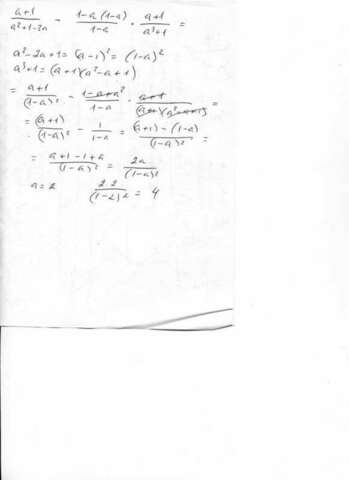 (a+1)/(a²+1-2a) - (1-a(1-a))/(1-a) · (a+1)/(a³+1) =
a²-2a+1 = (a-1)² = (1-a)²
a³+1 = (a+1)(a²-a+1)
= (a+1)/(1-a)² - (1-a+a²)/(1-a) · (a+1)/((a+1)(a²-a+1)) =
= (a+1)/(1-a)² - 1/(1-a) = ((a+1)-(1-a))/(1-a)² =
= (a+1-1+a)/(1-a)² = 2a/(1-a)²
a=2 (2·2)/(1-2)² = 4